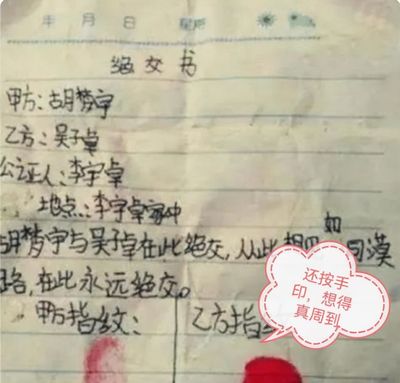 年 月 日 星期
绝交书
甲方:胡梦宇
乙方:吴子卓
公证人:李宇卓
地点:李宇卓家中
如
胡梦宇与吴子卓在此绝交,从此相见 同漠
路,在此永远绝交。
甲方指纹: 乙方指
还按手
印,想得
真周到